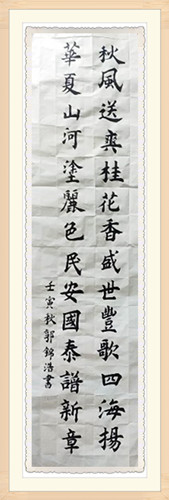 秋風送爽桂花香盛世豐歌四海揚
華夏山河塗麗色民安國泰譜新章
壬寅秋郭錦浩書